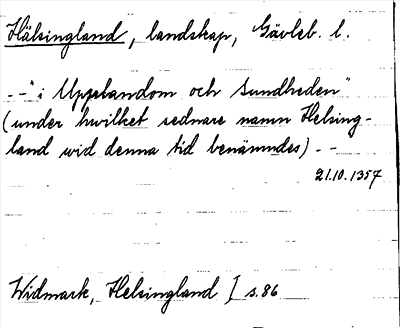 Hälsingland, landskap, Gävleb. l.
- - "i Upplandom och Sundheden"
(under hwilket sednare namn Helsing-
land wid denna tid benämndes) - -
21.10.1357
Widmark, Helsingland I s. 86